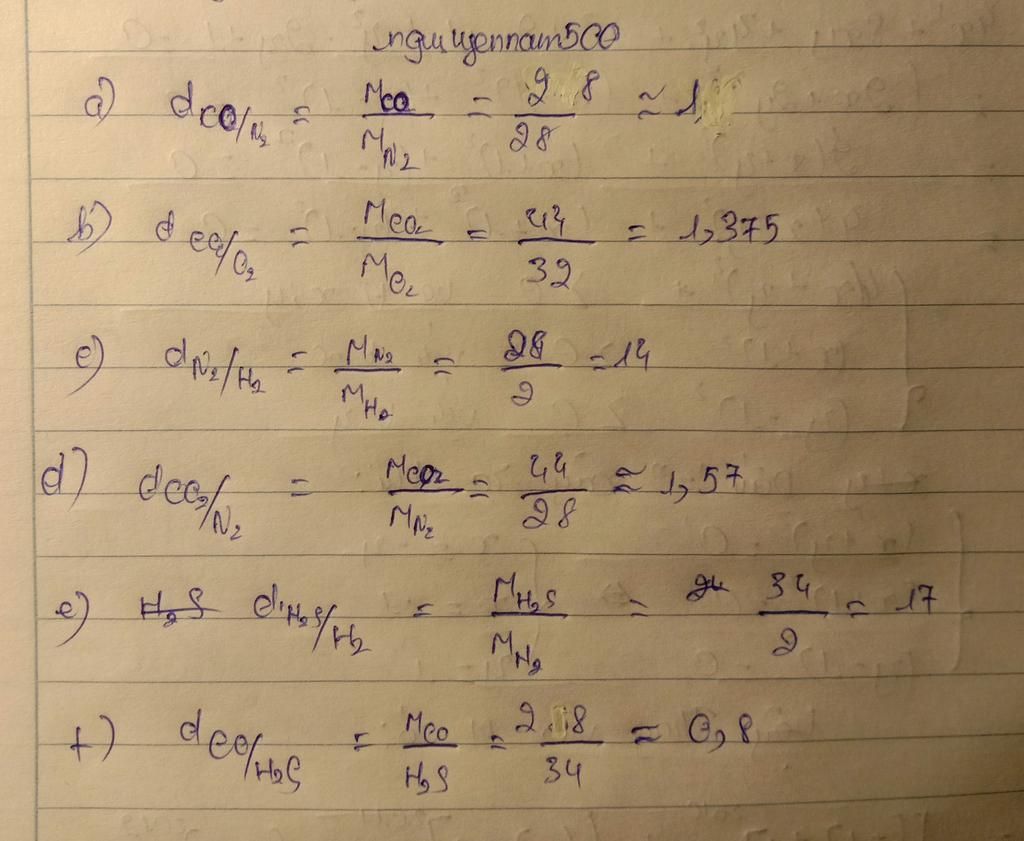 nguyennam500
a) dCO/N₂ = MCO/MN₂ = 28/28 ≈ 1,
b) dCO₂/O₂ = MCO₂/MO₂ = 44/32 = 1,375
c) dN₂/H₂ = MN₂/MH₂ = 28/2 = 14
d) dCO₂/N₂ = MCO₂/MN₂ = 44/28 ≈ 1,57
e) H₂S dH₂S/H₂ = MH₂S/MH₂ = 34/2 = 17
f) dCO/H₂S = MCO/H₂S = 28/34 ≈ 0,8